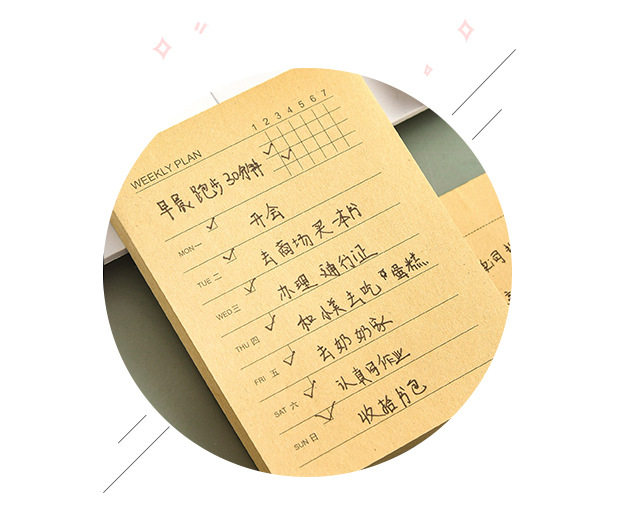 1 2 3 4 5 6 7
WEEKLY PLAN
早晨跑步30分钟
MON 一 开会
TUE 二 去商场买本书
WED 三 办理通行证
THU 四 和小美去吃蛋糕
FRI 五 去奶奶家
SAT 六 认真写作业
SUN 日 收拾书包